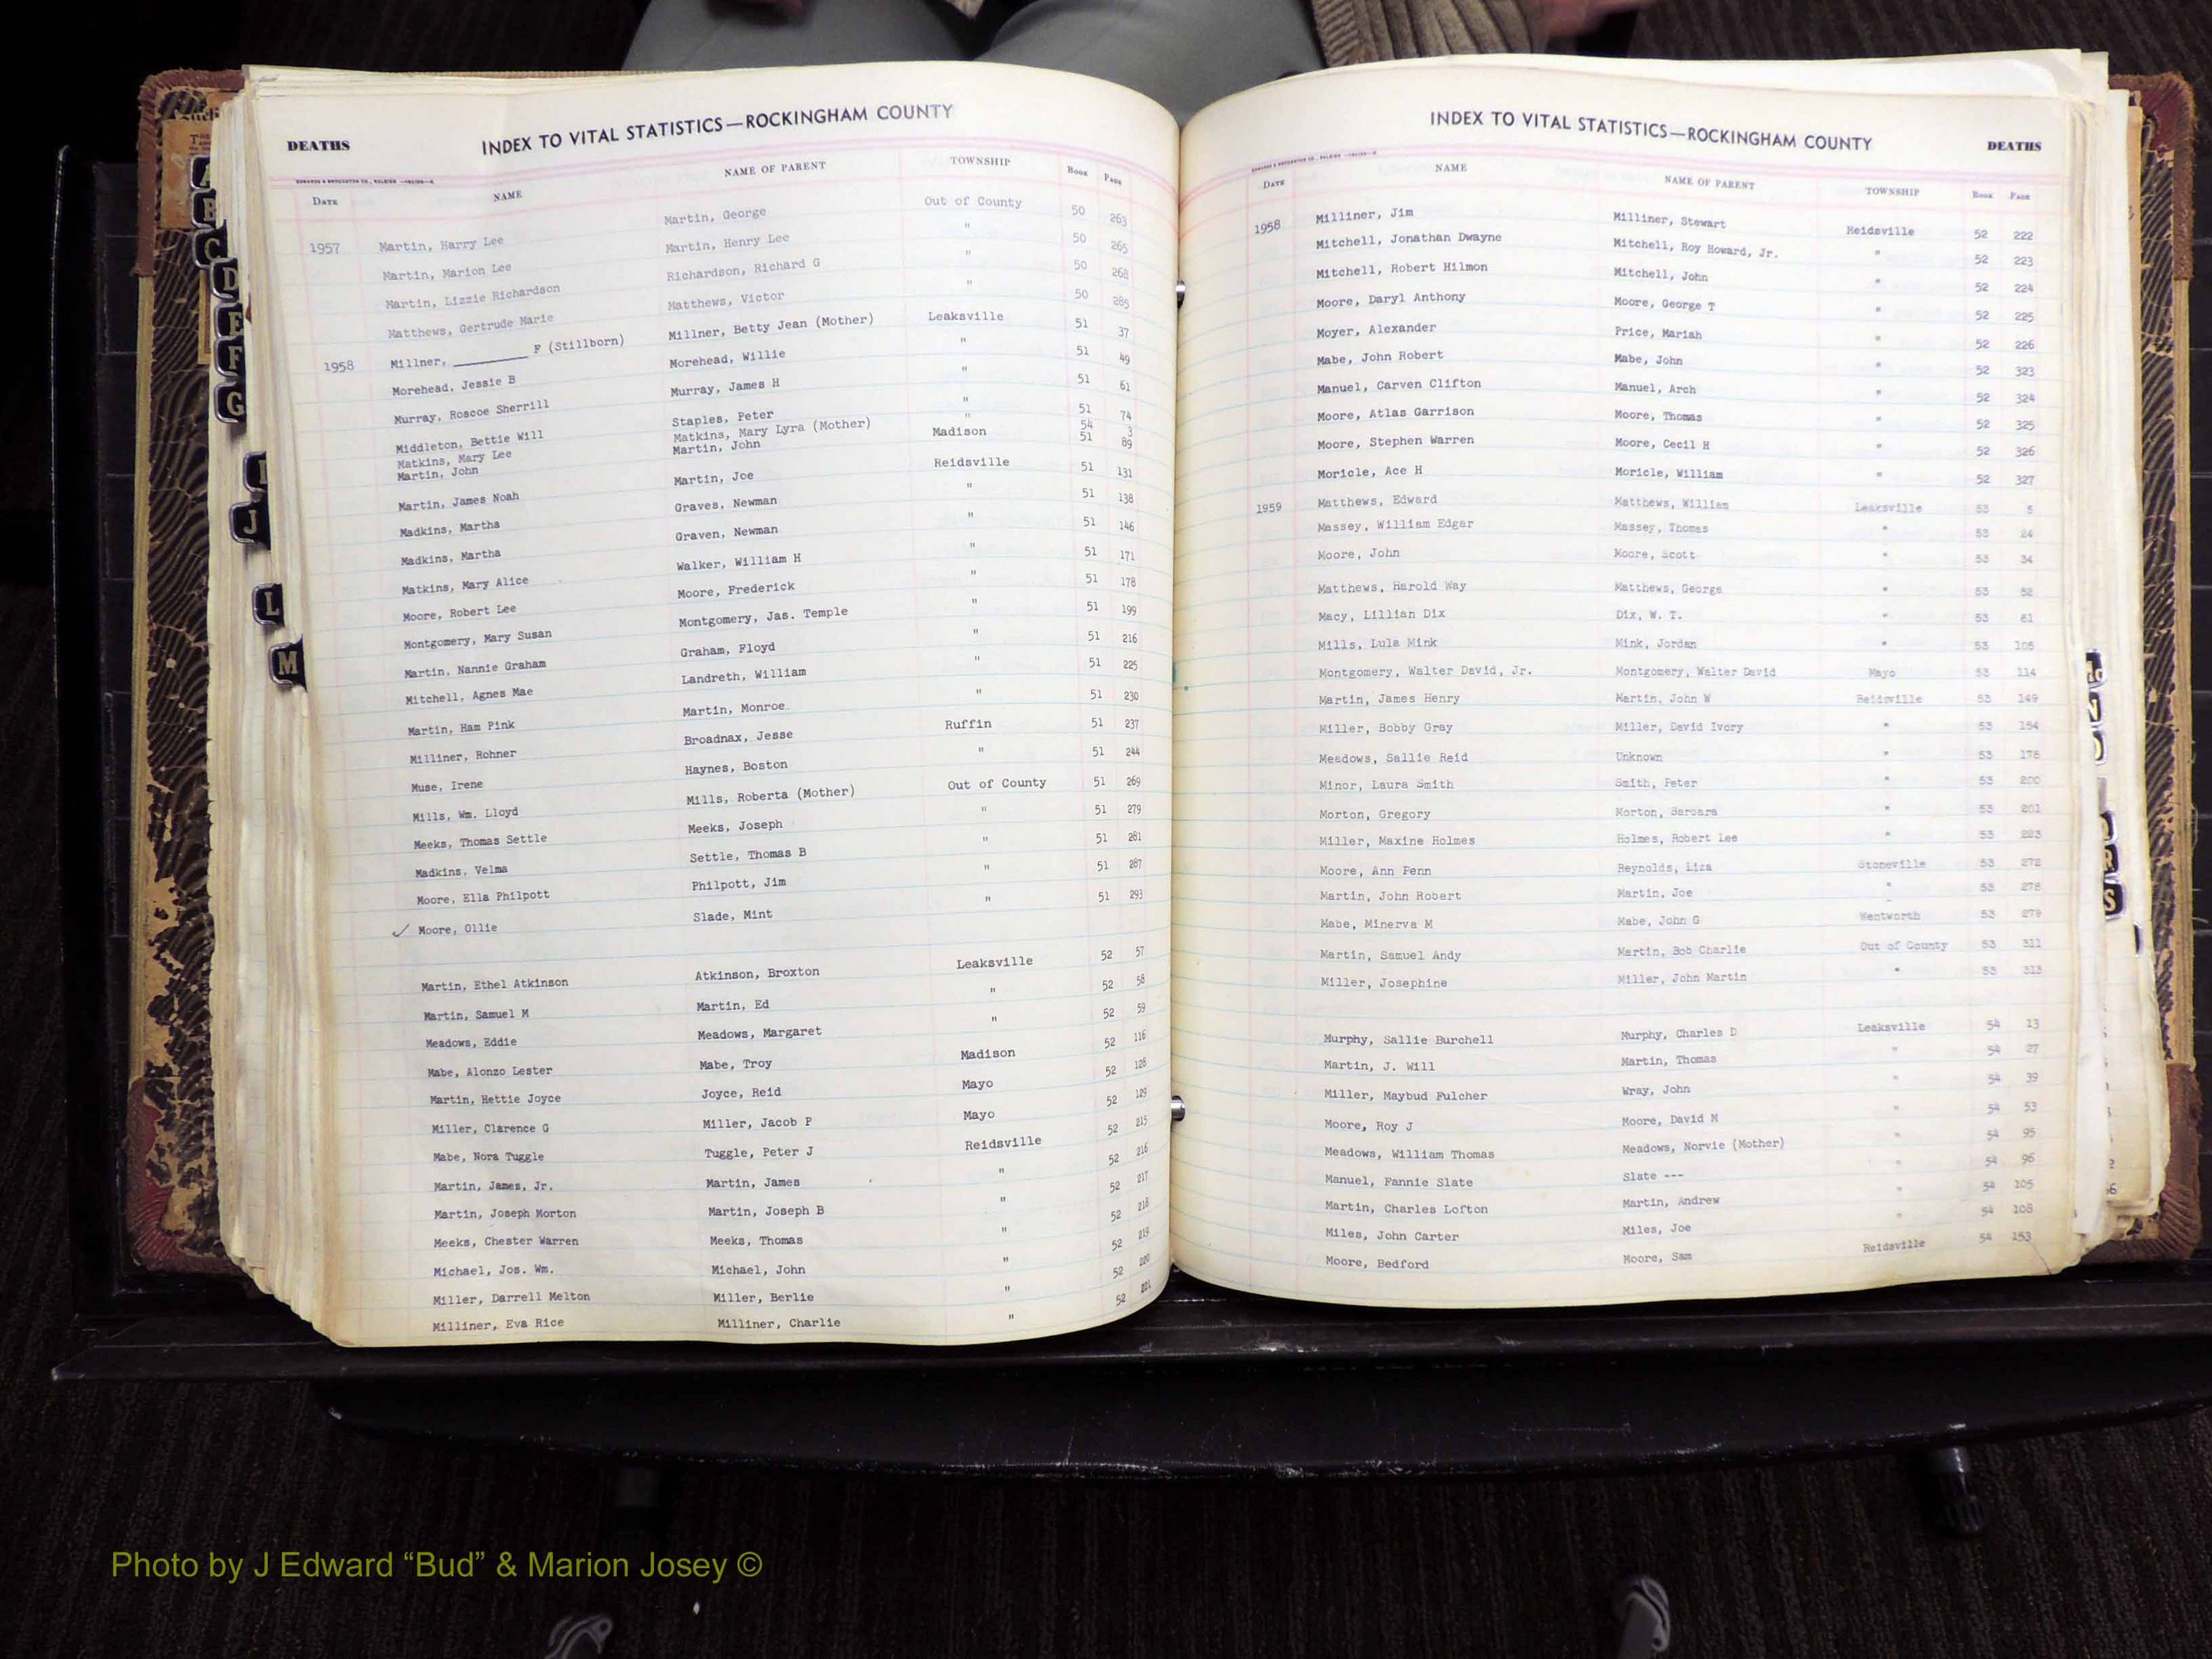 DEATHS INDEX TO VITAL STATISTICS—ROCKINGHAM COUNTY
DATE NAME NAME OF PARENT TOWNSHIP BOOK PAGE
1957 Martin, Harry Lee Martin, George Out of County 50 263
Martin, Marion Lee Martin, Henry Lee " 50 265
Martin, Lizzie Richardson Richardson, Richard G " 50 268
Matthews, Gertrude Marie Matthews, Victor " 50 285
1958 Millner, ________ F (Stillborn) Millner, Betty Jean (Mother) Leaksville 51 37
Morehead, Jessie B Morehead, Willie " 51 49
Murray, Roscoe Sherrill Murray, James H " 51 61
Middleton, Bettie Will Staples, Peter " 51 74
Matkins, Mary Lee Matkins, Mary Lyra (Mother) " 54 3
Martin, John Martin, John Madison 51 89
Martin, James Noah Martin, Joe Reidsville 51 131
Madkins, Martha Graves, Newman " 51 138
Madkins, Martha Graven, Newman " 51 146
Matkins, Mary Alice Walker, William H " 51 171
Moore, Robert Lee Moore, Frederick " 51 178
Montgomery, Mary Susan Montgomery, Jas. Temple " 51 199
Martin, Nannie Graham Graham, Floyd " 51 216
Mitchell, Agnes Mae Landreth, William " 51 225
Martin, Ham Pink Martin, Monroe " 51 230
Milliner, Rohner Broadnax, Jesse Ruffin 51 237
Muse, Irene Haynes, Boston " 51 244
Mills, Wm. Lloyd Mills, Roberta (Mother) Out of County 51 269
Meeks, Thomas Settle Meeks, Joseph " 51 279
Madkins, Velma Settle, Thomas B " 51 281
Moore, Ella Philpott Philpott, Jim " 51 287
✓ Moore, Ollie Slade, Mint " 51 293
Martin, Ethel Atkinson Atkinson, Broxton Leaksville 52 57
Martin, Samuel M Martin, Ed " 52 58
Meadows, Eddie Meadows, Margaret " 52 59
Mabe, Alonzo Lester Mabe, Troy Madison 52 116
Martin, Hettie Joyce Joyce, Reid Mayo 52 128
Miller, Clarence G Miller, Jacob P Mayo 52 129
Mabe, Nora Tuggle Tuggle, Peter J Reidsville 52 215
Martin, James, Jr. Martin, James " 52 216
Martin, Joseph Morton Martin, Joseph B " 52 217
Meeks, Chester Warren Meeks, Thomas " 52 218
Michael, Jos. Wm. Michael, John " 52 219
Miller, Darrell Melton Miller, Berlie " 52 220
Milliner, Eva Rice Milliner, Charlie " 52 221
INDEX TO VITAL STATISTICS—ROCKINGHAM COUNTY DEATHS
DATE NAME NAME OF PARENT TOWNSHIP BOOK PAGE
1958 Milliner, Jim Milliner, Stewart Reidsville 52 222
Mitchell, Jonathan Dwayne Mitchell, Roy Howard, Jr. " 52 223
Mitchell, Robert Hilmon Mitchell, John " 52 224
Moore, Daryl Anthony Moore, George T " 52 225
Moyer, Alexander Price, Mariah " 52 226
Mabe, John Robert Mabe, John " 52 323
Manuel, Carven Clifton Manuel, Arch " 52 324
Moore, Atlas Garrison Moore, Thomas " 52 325
Moore, Stephen Warren Moore, Cecil H " 52 326
Moricle, Ace H Moricle, William " 52 327
1959 Matthews, Edward Matthews, William Leaksville 53 5
Massey, William Edgar Massey, Thomas " 53 24
Moore, John Moore, Scott " 53 34
Matthews, Harold Way Matthews, George " 53 52
Macy, Lillian Dix Dix, W. T. " 53 61
Mills, Lula Mink Mink, Jordan " 53 105
Montgomery, Walter David, Jr. Montgomery, Walter David Mayo 53 114
Martin, James Henry Martin, John W Reidsville 53 149
Miller, Bobby Gray Miller, David Ivory " 53 154
Meadows, Sallie Reid Unknown " 53 178
Minor, Laura Smith Smith, Peter " 53 200
Morton, Gregory Morton, Barbara " 53 201
Miller, Maxine Holmes Holmes, Robert Lee " 53 223
Moore, Ann Penn Reynolds, Liza Stoneville 53 272
Martin, John Robert Martin, Joe " 53 278
Mabe, Minerva M Mabe, John G Wentworth 53 279
Martin, Samuel Andy Martin, Bob Charlie Out of County 53 311
Miller, Josephine Miller, John Martin " 53 313
Murphy, Sallie Burchell Murphy, Charles D Leaksville 54 13
Martin, J. Will Martin, Thomas " 54 27
Miller, Maybud Fulcher Wray, John " 54 39
Moore, Roy J Moore, David M " 54 53
Meadows, William Thomas Meadows, Norvie (Mother) " 54 95
Manuel, Fannie Slate Slate --- " 54 96
Martin, Charles Lofton Martin, Andrew " 54 105
Miles, John Carter Miles, Joe " 54 108
Moore, Bedford Moore, Sam Reidsville 54 153
C
D
E
F
G
J
L
M
N
R
S
Photo by J Edward “Bud” & Marion Josey ©